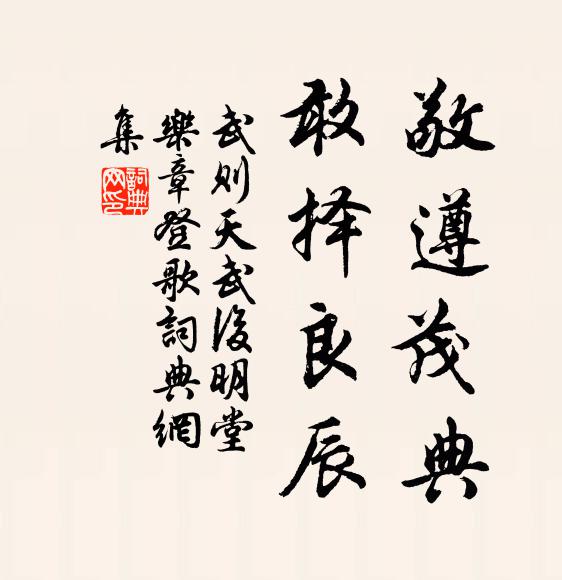 敬遵茂典
敢择良辰
武则天武后明堂
樂章登歌詞典網
集
詞典
网印